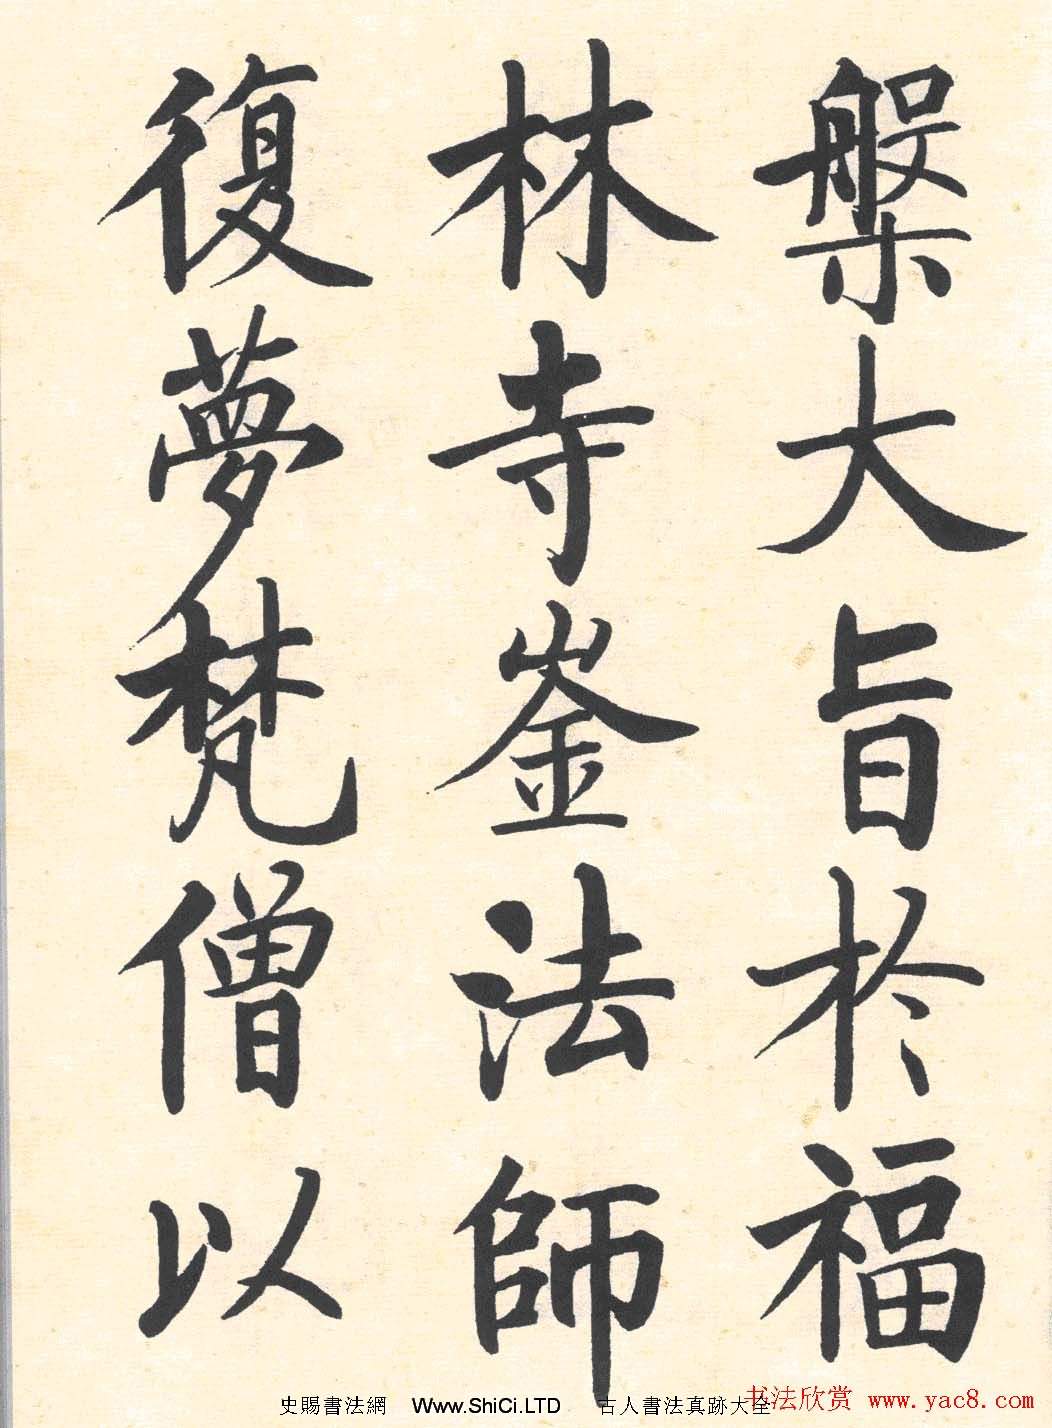 槃大旨於福
林寺崟法師
復夢梵僧以
史賜書法網 Www.ShiCi.LTD 古人書法真跡大全
书法欣赏 www.yac8.com